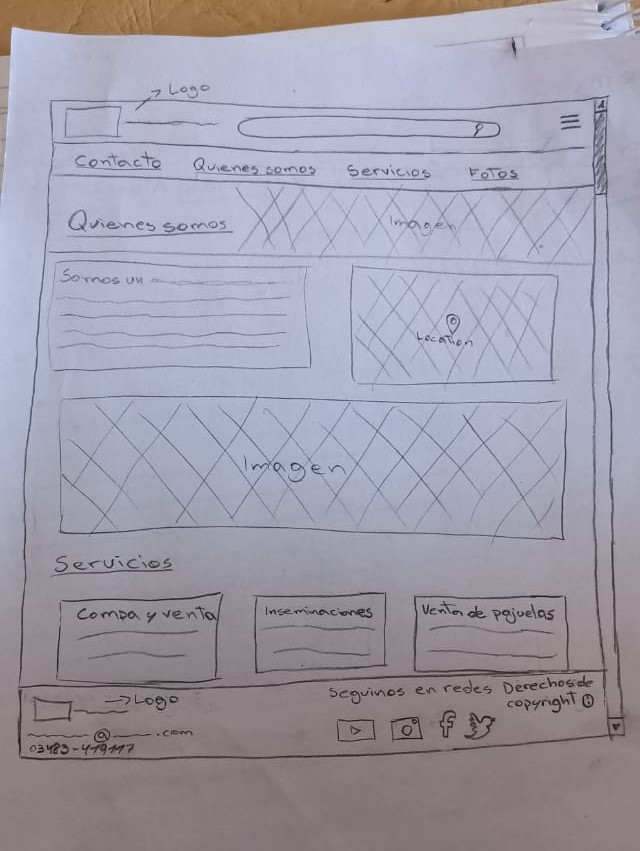 Logo
Contacto Quienes somos Servicios Fotos
Quienes somos
Imagen
Somos un
Location
Imagen
Servicios
Compa y venta
Inseminaciones
Venta de pajuelas
Logo
@ .com
03483-419117
Seguinos en redes
Derechos de
copyright ©